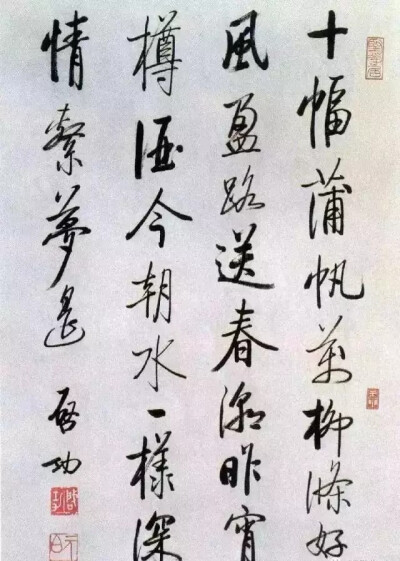 十幅蒲帆萬柳條好
風盈路送春潮昨宵
樽酒今朝水一樣深
情縈夢遙 啟功